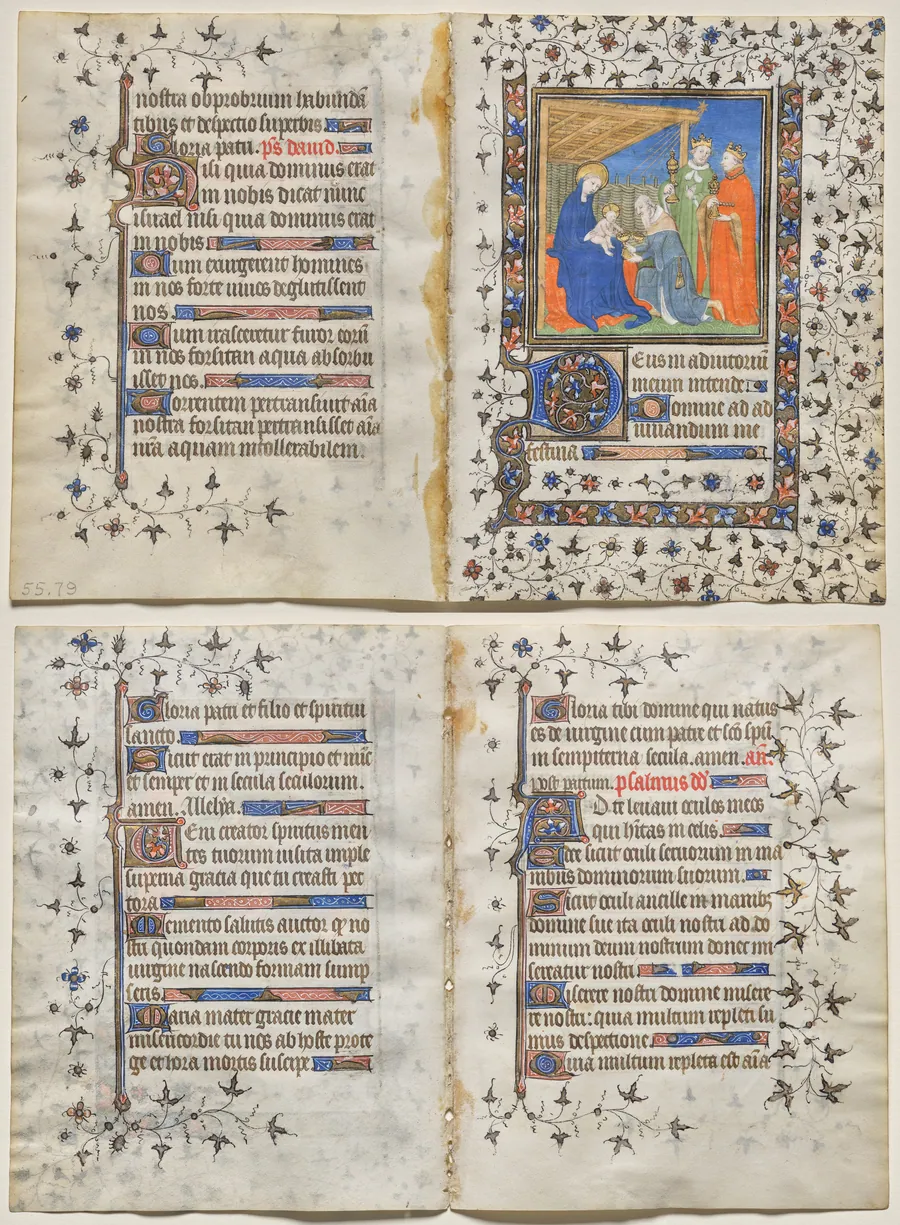 nostra obprobrium habundã
tibus et despectio superbis
Gloria patri. p̃s dauid.
Nisi quia dominus erat
in nobis dicat nunc
israel nisi quia dominus erat
in nobis
Cum exurgerent homines
in nos forte uiuos deglutissent
nos.
Cum irasceretur furor eorũ
in nos forsitan aqua absorbu
isset nos.
Torrentem pertransiuit aĩa
nostra forsitan pertransisset aĩa
nr̃a aquam intollerabilem.
55.79
Deus in adiutoriũ
meum intende
Domine ad ad
iuuandum me
festina
Gloria patri et filio et spiritui
sancto
Sicut erat in principio et nũc
et semper et in secula seculorum.
amen. Alleluya.
Veni creator spiritus men
tes tuorum uisita imple
superna gracia que tu creasti pec
tora
Memento salutis auctor q no
stri quondam corporis ex illibata
uirgine nascendo formam sump
seris
Maria mater gracie mater
misericordie tu nos ab hoste prote
ge et hora mortis suscipe
Gloria tibi domine qui natus
es de uirgine cum patre et sc̃o spũ
in sempiterna secula. amen. añ.
post partum. psalmus dd̃
Ad te leuaui oculos meos
qui hĩtas in celis.
Ecce sicut oculi seruorum in ma
nibus dominorum suorum.
Sicut oculi ancille in manibꝫ
domine sue ita oculi nostri ad do
minum deum nostrum donec mi
sereatur nostri
Miserere nostri domine misere
re nostri: quia multum repleti su
mus despectione
Quia multum repleta est aĩa